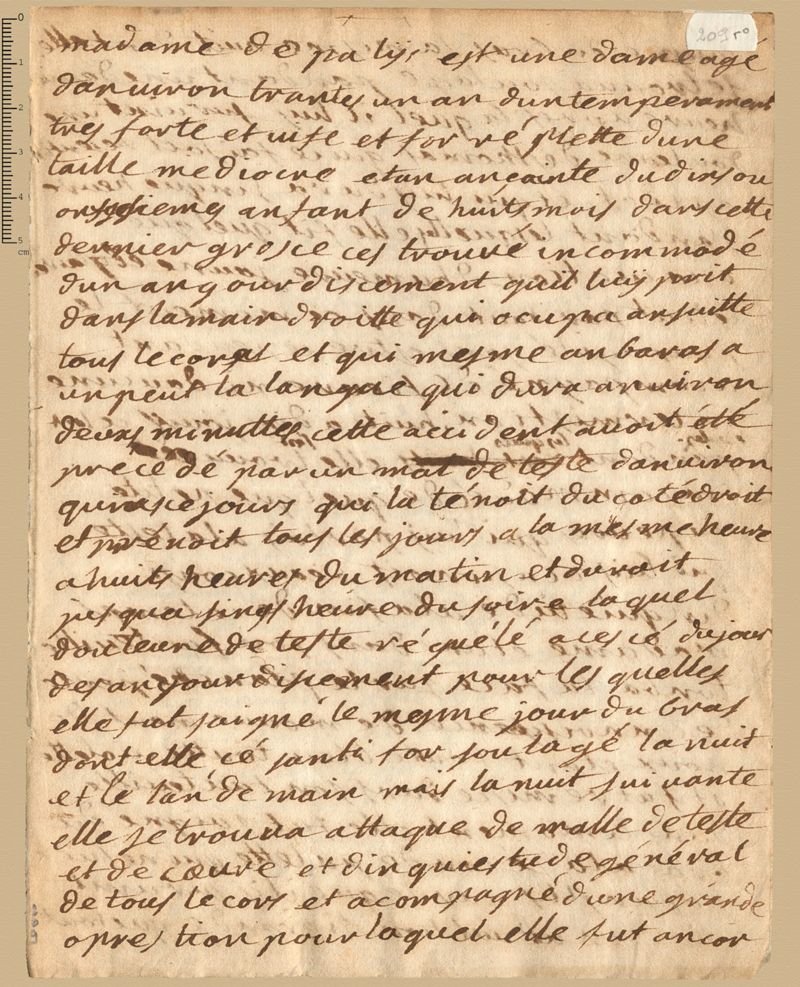 209 ro
madame de palis est une dame agé
danuiron trantes un an dun temperament
tres forte et uife et for ré plette dune
taille mediocre et an ançainte du dixs ou
onssiemes anfant de huits mois dans cette
dernier grosce ces trouvé incommodé
dun angourdiscement quil luis prit
dans la main droitte qui ocupa ansuitte
tous le corps et qui mesme anbarasa
un peut la langue qui dura anuiron
deuxs minuttes cette accident auoit été
precede par un mal de teste danuiron
quinsce jours qui la ténoit du coté droit
et prénoit tous les jours a la mesme heure
a huits heures du matin et duroit
jusqua sinqs heure du soire laquel
douleure de teste régulé a cescé du jour
des angourdisement pour les quelles
elle fut saigné le mesme jour du bras
dont elle cé santi for soulagé la nuit
et le lan de main mais la nuit suiuante
elle se trouua attaque de malle de teste
et de cœure et dinquiestude général
de tous le cors et acompagné dune grande
opression pour laquel elle fut ancor
0
1
2
3
4
5
cm